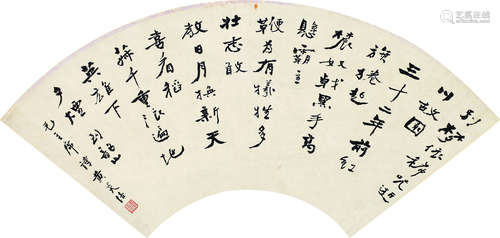 别夢依稀咒逝
川故園
三十二年前紅
旗捲起
農奴戟黑手高
懸霸主
鞭為有犧牲多
壯志敢
教日月換新天
喜看稻
菽千重浪遍地
英雄下
夕煙 到韶山
毛主席詩 黄